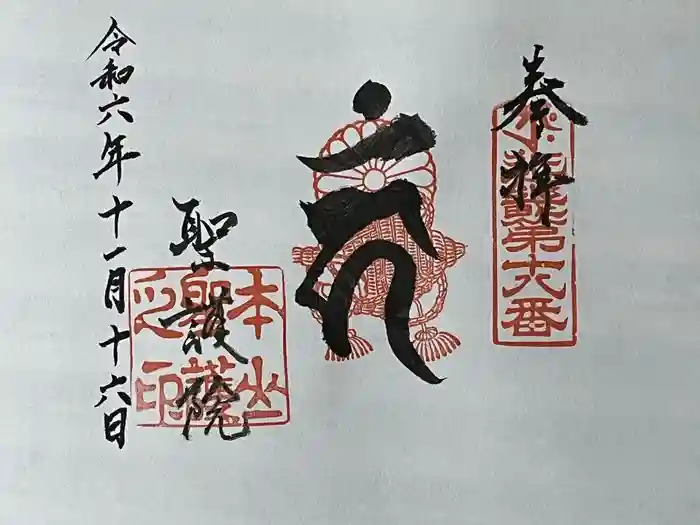 奉拝
第十八番
聖護院
本山
聖護院
之印
令和六年十一月十六日